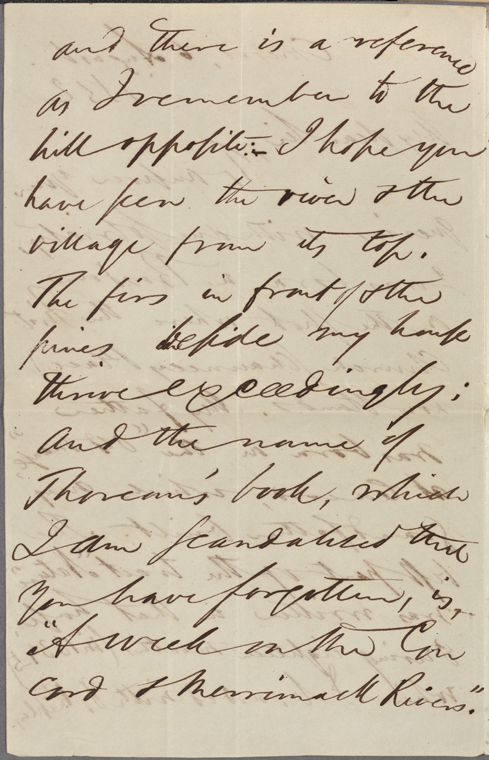 and there is a reference
as I remember to the
hill opposite:- I hope you
have seen the river & the
village from its top.
The firs in front, & the
pines beside my house
thrive exceedingly;
and the name of
Thoreau's book, which
I am scandalised that
you have forgotten, is,
"A week on the Con
cord & Merrimack Rivers."